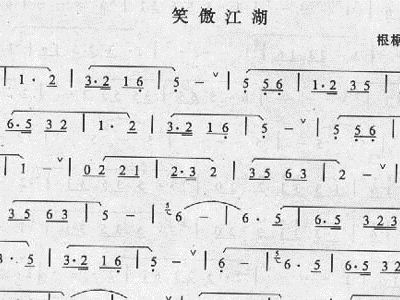 笑傲江湖
根
| 1 · 2 | 3·2 1 6 | 5 – ∨ | 5 5 6 | 1·2 3 5 |
6·5 3 2 | 1 · 2 | 3·2 1 6 | 5 – ∨ | 5 5 6 |
| 1 – ∨ | 0 2 2 1 | 2·3 2 | 3 5 6 3 | 2 – ∨ |
3 5 6 3 | 5 – | 6 – | 6 · 5 | 6·5 3 2 3
· 5 | 3·2 1 6 | 5 – ∨ | 6 – | 6 · 5 | 6·5